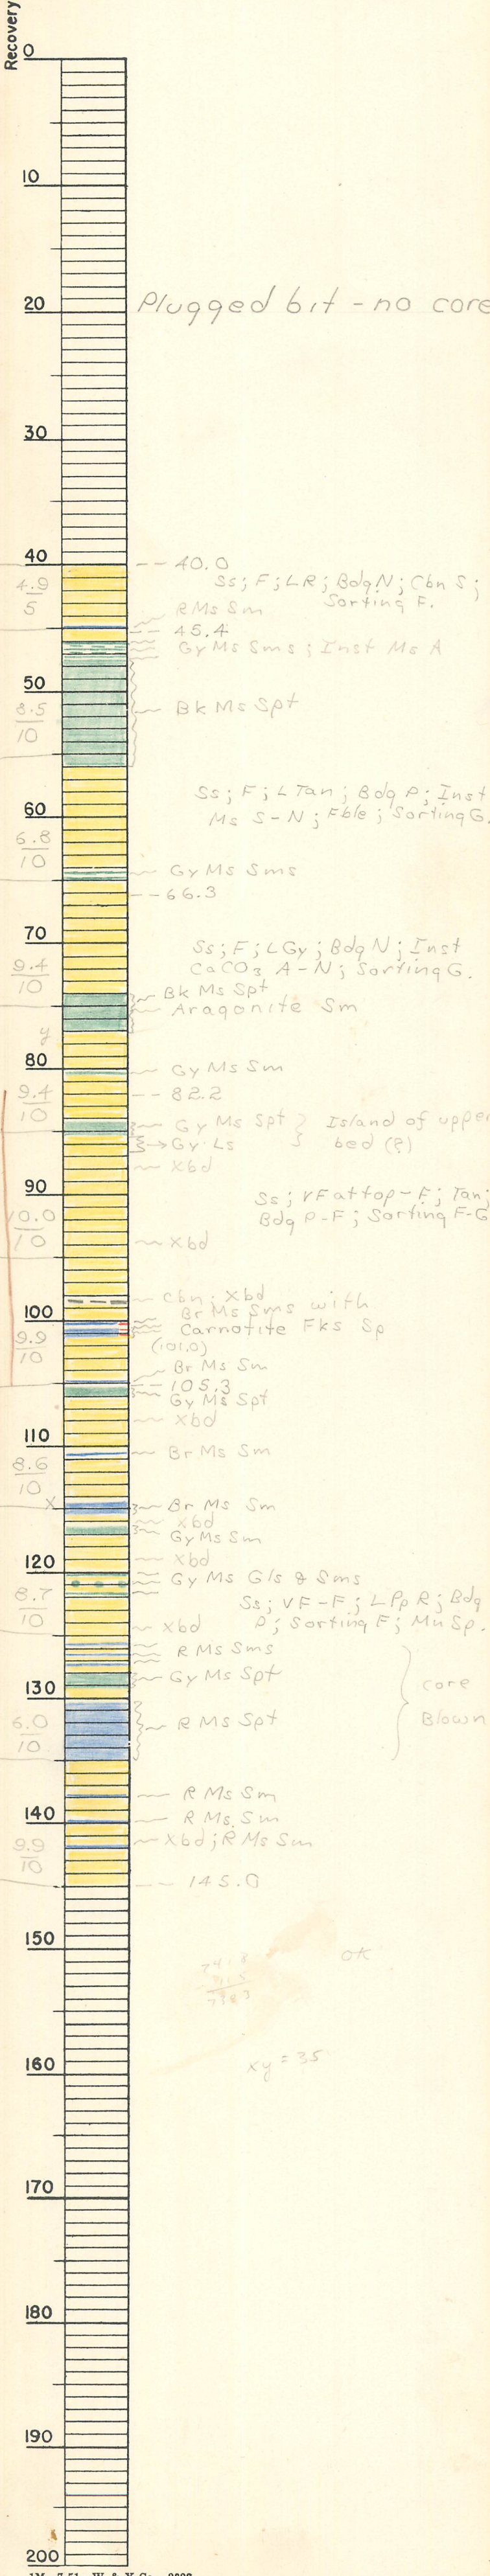 Recovery
0
10
20 Plugged bit - no core
30
40 -- 40.0
4.9
5
Ss; F; LR; Bdg N; Cbn S;
Sorting F.
R Ms Sm
-- 45.4
Gy Ms Sms; Inst Ms A
50
8.5
10
Bk Ms Spt
Ss; F; L Tan; Bdg P; Inst
60
Ms S-N; Fble; Sorting G.
6.8
10
Gy Ms Sms
-- 66.3
70
Ss; F; LGy; Bdg N; Inst
CaCO3 A-N; Sorting G.
9.4
10
Bk Ms Spt
Aragonite Sm
y
80
Gy Ms Sm
9.4
10
-- 82.2
Gy Ms Spt } Island of upper
→ Gy Ls bed (?)
Xbd
90
Ss; VF at top - F; Tan;
Bdg P-F; Sorting F-G
10.0
10
Xbd
Cbn; Xbd
100
Br Ms Sms with
Carnotite Fks Sp
(101.0)
9.9
10
Br Ms Sm
-- 105.3
Gy Ms Spt
Xbd
110
Br Ms Sm
8.6
10
x
Br Ms Sm
Xbd
Gy Ms Sm
120
Xbd
Gy Ms Gls & Sms
8.7
10
Ss; VF-F; LPp R; Bdg
P; Sorting F; Mn Sp.
Xbd
R Ms Sms
Gy Ms Spt
130
core
Blown
6.0
10
R Ms Spt
R Ms Sm
140
R Ms Sm
Xbd; R Ms Sm
9.9
10
-- 145.0
150
OK
160
xy = 35
170
180
190
200